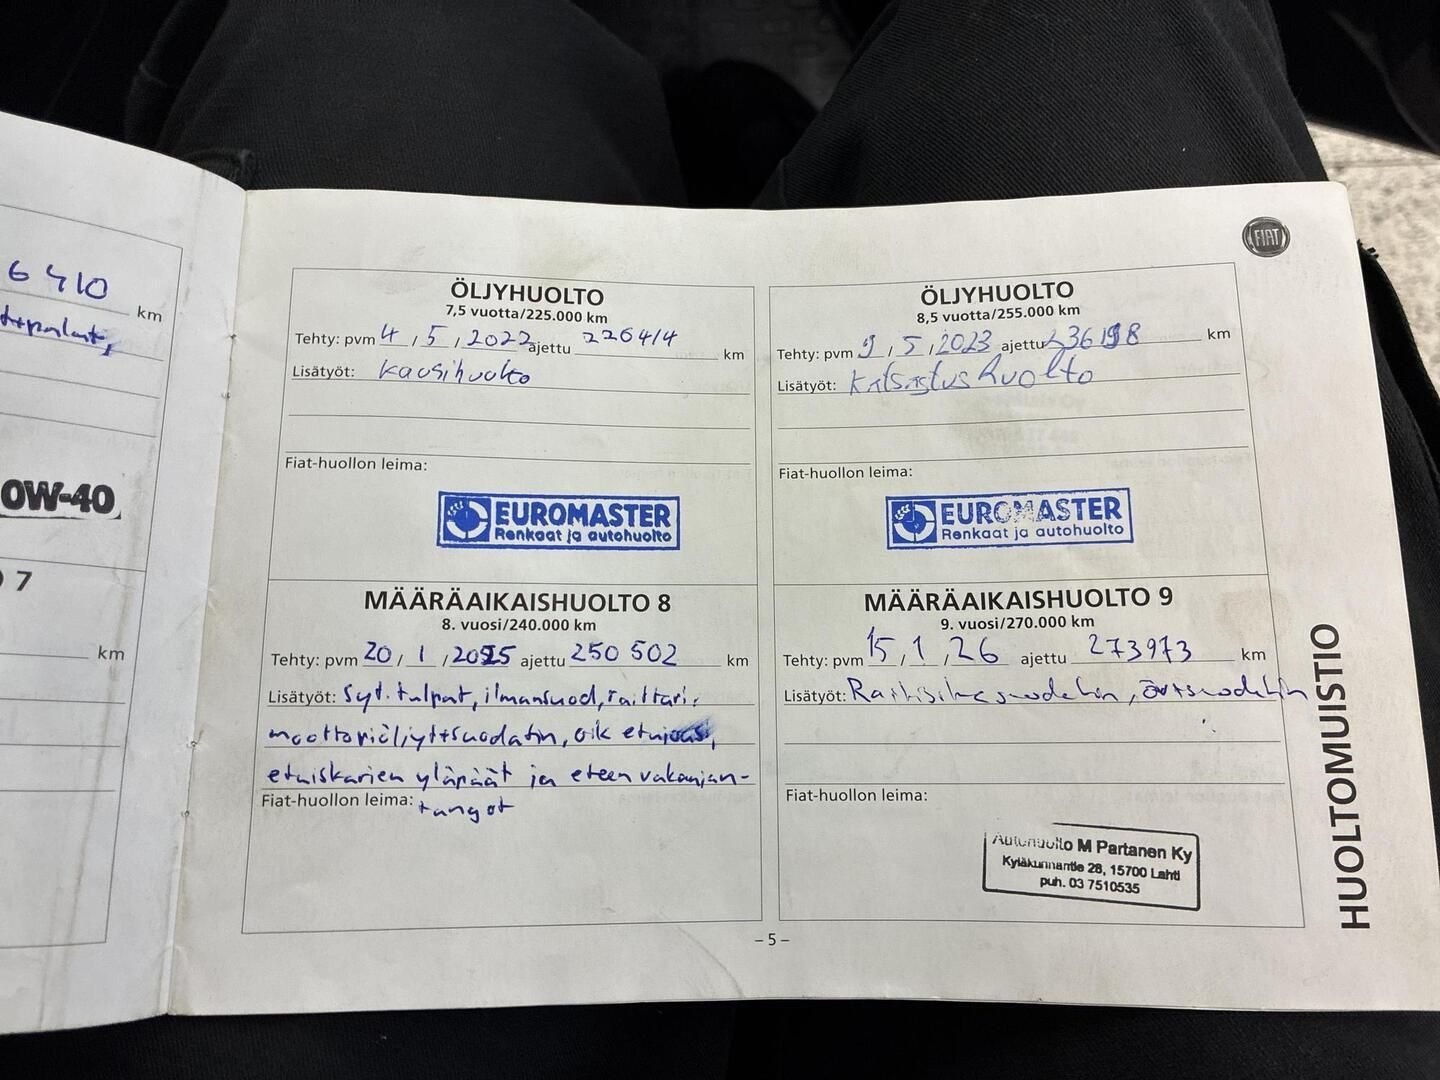 6410 km
0W-40
7
km
FIAT
ÖLJYHUOLTO
7,5 vuotta/225.000 km
Tehty: pvm 4 / 5 / 2022 ajettu 226414 km
Lisätyöt: Kausihuolto
Fiat-huollon leima:
EUROMASTER
Renkaat ja autohuolto
ÖLJYHUOLTO
8,5 vuotta/255.000 km
Tehty: pvm 9 / 5 / 2023 ajettu 236198 km
Lisätyöt: Katsastushuolto
Fiat-huollon leima:
EUROMASTER
Renkaat ja autohuolto
MÄÄRÄAIKAISHUOLTO 8
8. vuosi/240.000 km
Tehty: pvm 20 / 1 / 2025 ajettu 250 502 km
Lisätyöt: Syt. tulpat, ilmansuod,
moottoriöljyt+suodatin, oik etujousi,
etuiskarien yläpäät ja eteen vakaajan-
Fiat-huollon leima: tangot
MÄÄRÄAIKAISHUOLTO 9
9. vuosi/270.000 km
Tehty: pvm 15 / 1 / 26 ajettu 273973 km
Lisätyöt: Raitisilmasuodatin,
Fiat-huollon leima:
Autohuolto M Partanen Ky
Kyläkunnantie 28, 15700 Lahti
puh. 03 7510535
HUOLTOMUISTIO
– 5 –